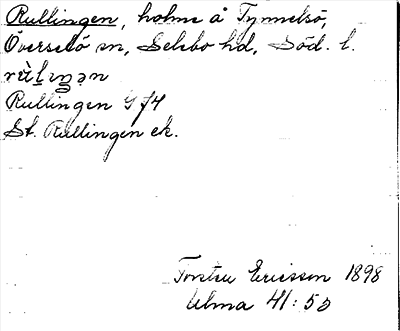 Rullingen, holme å Tynnelsö,
Överselö sn, Selebo hd, Söd. l.
Rullingen G f4
St. Rullingen ek.
Torsten Ericsson 1898
Ulma 41:50